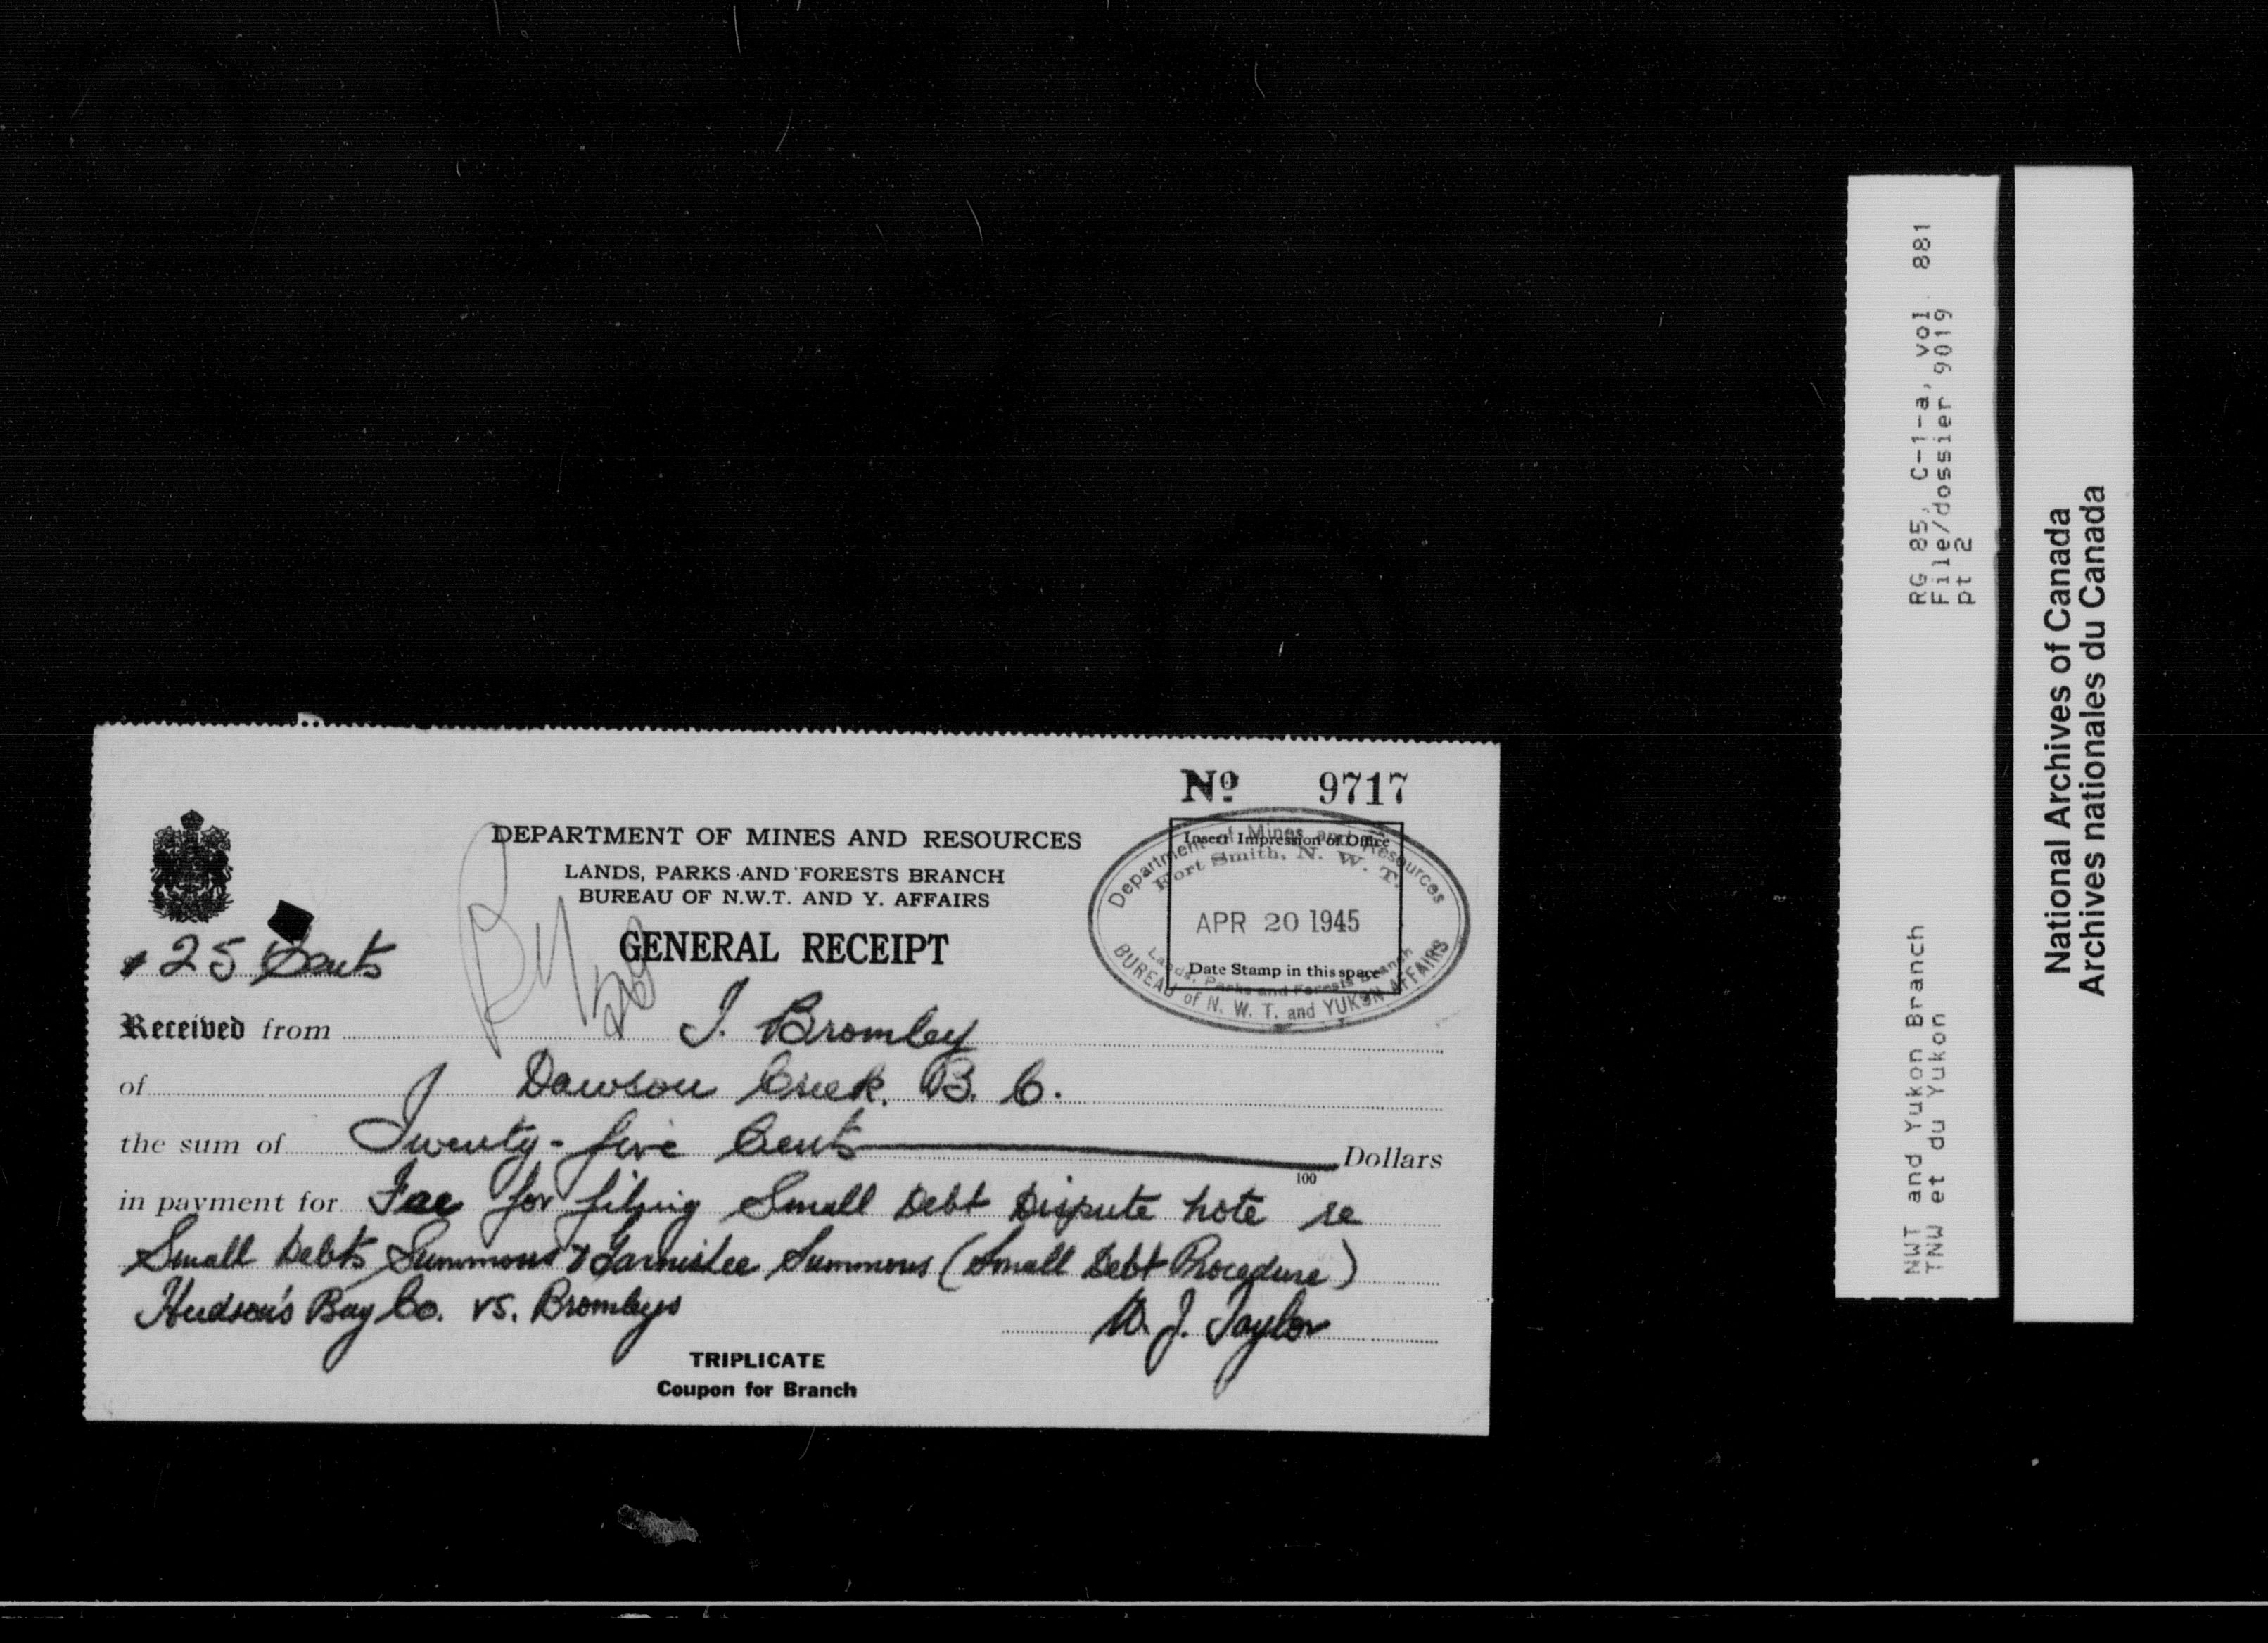 Nº 9717
DEPARTMENT OF MINES AND RESOURCES
LANDS, PARKS AND FORESTS BRANCH
BUREAU OF N.W.T. AND Y. AFFAIRS
GENERAL RECEIPT
Insert Impression of Office
Department of Mines and Resources
Fort Smith, N. W. T.
APR 20 1945
Date Stamp in this space
Lands, Parks and Forests Branch
BUREAU of N. W. T. and YUKON AFFAIRS
25 Cents
Received from J. Bromley
of Dawson Creek. B. C.
the sum of Twenty-five Cents Dollars
100
in payment for Fee for filing Small Debt Dispute note re
Small Debts Summons & Garnishee Summons (Small Debt Procedure)
Hudson's Bay Co. vs. Bromleys
J. Taylor
TRIPLICATE
Coupon for Branch
NWT and Yukon Branch RG 85, C-1-a, vol. 881
TNW et du Yukon File/dossier 9019
pt 2
National Archives of Canada
Archives nationales du Canada